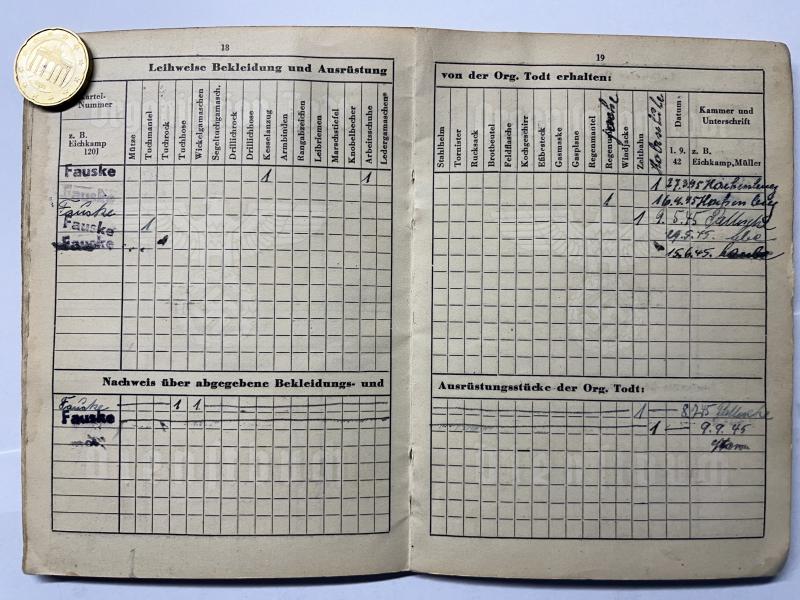 18
Leihweise Bekleidung und Ausrüstung
Kartei-Nummer
z. B. Eichkamp 1201
Mütze
Tuchmantel
Tuchrock
Tuchhose
Wickelgamaschen
Segeltuchgamasch.
Drillichrock
Drillichhose
Kesselanzug
Armbinden
Rangabzeichen
Leibriemen
Marschstiefel
Knobelbecher
Arbeitsschuhe
Ledergamaschen
Fauske
1 1
Fauske
Fauske
Fauske 1
Fauske
Nachweis über abgegebene Bekleidungs- und
Fauske 1 1
Fauske
19
von der Org. Todt erhalten:
Stahlhelm
Tornister
Rucksack
Brotbeutel
Feldflasche
Kochgeschirr
Eßbesteck
Gasmaske
Gasplane
Regenmantel
Windjacke
Zeltbahn
Datum
1. 9. 42
Kammer und Unterschrift
z. B. Eichkamp, Müller
1 27.3.45
1 1 6.4.45
1 9.5.45
29.5.45
15.6.45.
Ausrüstungsstücke der Org. Todt:
1 8.7.45
1 9.9.45